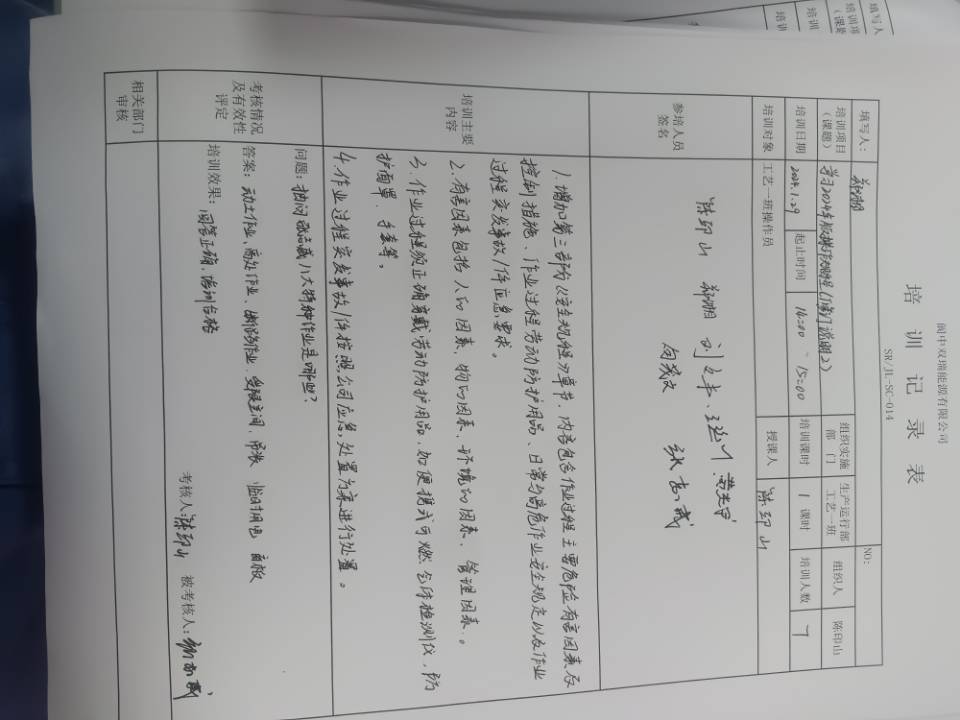 阆中双瑞能源有限公司
培训记录表
SR/JL-SC-014
NO:
填写人： 郑湘
培训项目（课题） 学习2024年版操作规程(修订说明2) 组织实施部门 生产运行部工艺一班 组织人 陈印山
培训日期 2024.1.29 起止时间 14:00 - 15:00 培训课时 1课时 培训人数 7
培训对象 工艺一班操作员 授课人 陈印山
参培人员签名
陈印山 郑湘 刘
培训主要内容
1.增加第三部份《安全规程》章节,内容包含作业过程主要危险有害因素及
控制措施、作业过程劳动防护用品、日常与高危作业安全规定以及作业
过程突发事故/件应急要求。
2.有害因素包括人的因素、物的因素、环境的因素、管理因素。
3.作业过程须正确穿戴劳动防护用品,如便携式可燃气体检测仪、防
护面罩、手套等。
4.作业过程突发事故/件按照公司应急处置方案进行处置。
考核情况及有效性评定
问题：抽问张志威八大特种作业是哪些?
答案：动土作业、高处作业、断路作业、受限空间、吊装 临时用电 盲板
培训效果：回答正确,培训合格
考核人：陈印山 被考核人：
相关部门审核
填写人
培训项
(课题
培训